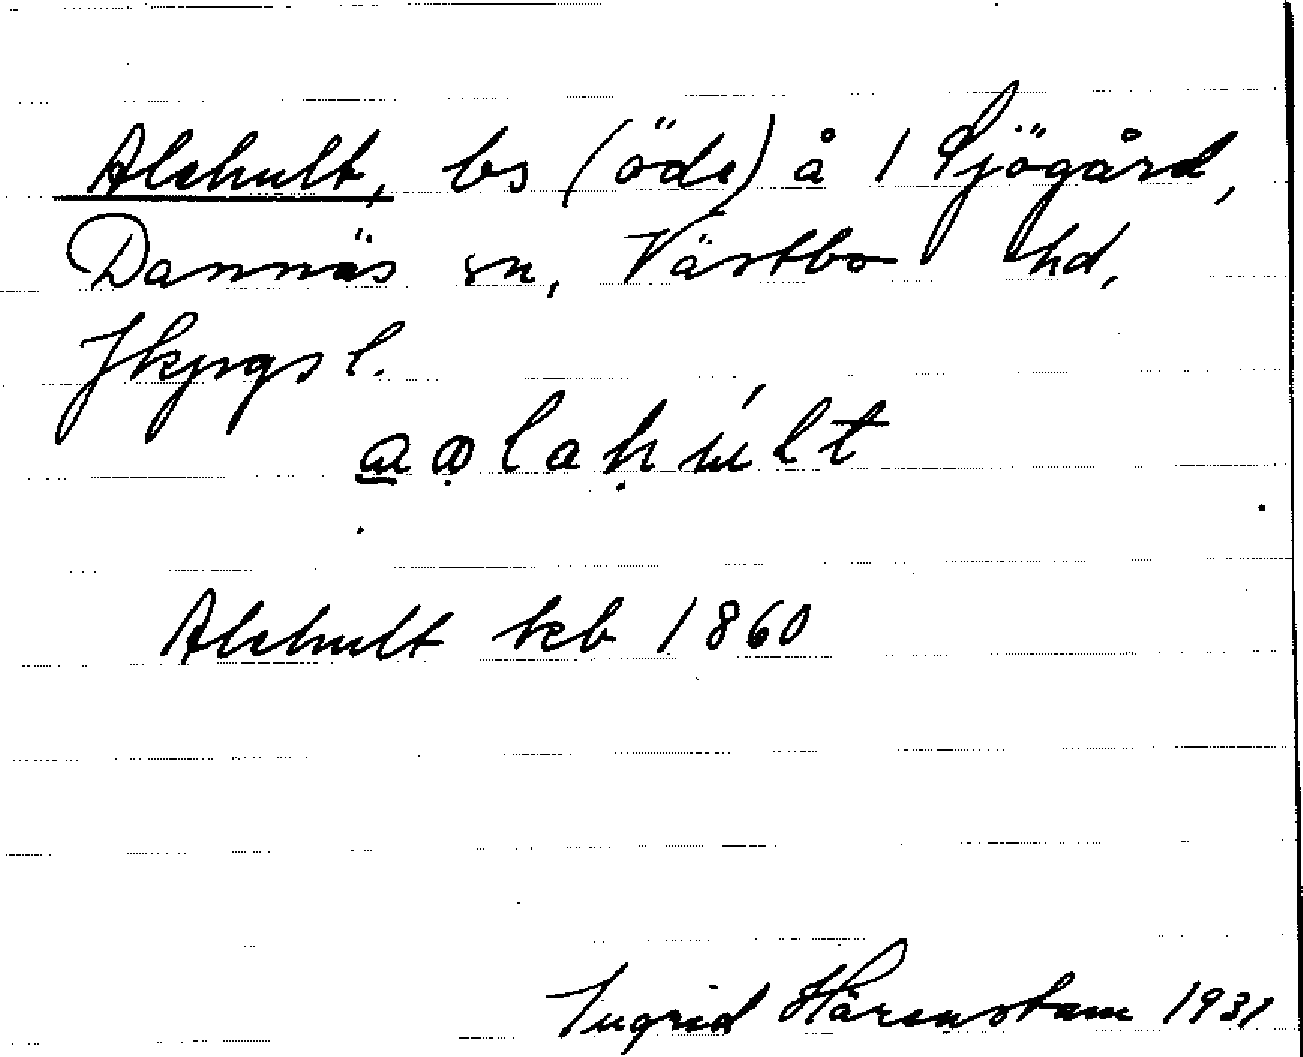 Alehult, bs (öde) å 1 Sjögård,
Dannäs sn, Västbo hd,
Jkpgs l.
Alehult kcb 1860
Ingrid Härenstam 1931